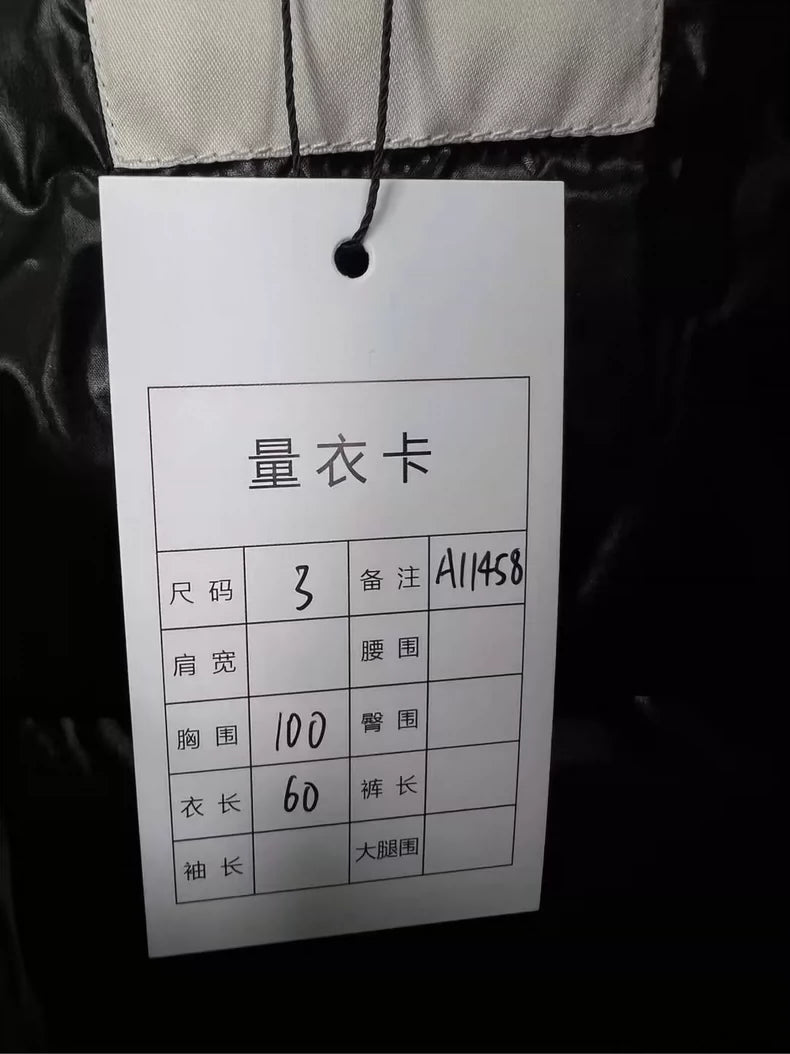 量衣卡
尺码 3 备注 A11458
肩宽 腰围
胸围 100 臀围
衣长 60 裤长
袖长 大腿围